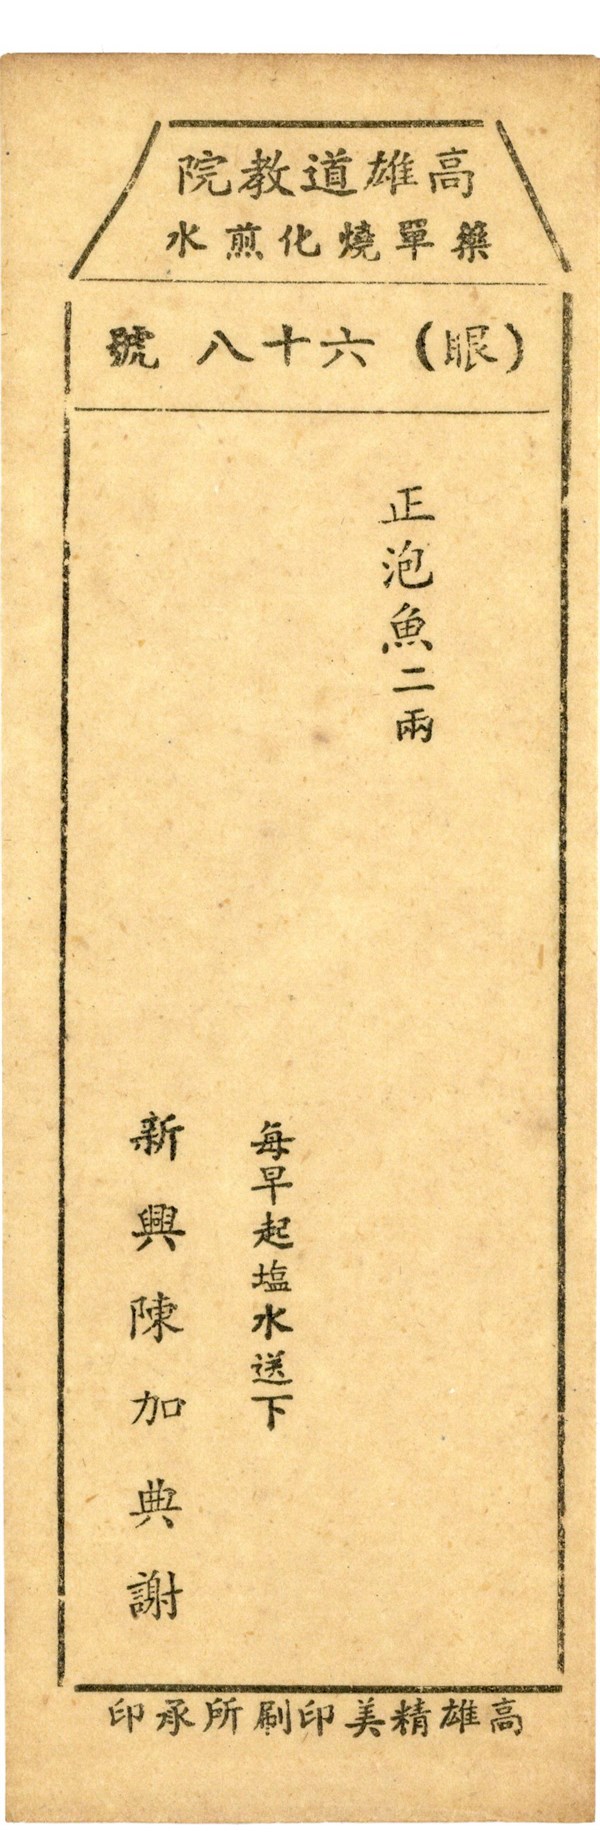 高雄道教院
藥單燒化煎水
（眼）六十八 號
正泡魚二兩
每早起塩水送下
新興陳加典謝
高雄精美印刷所承印